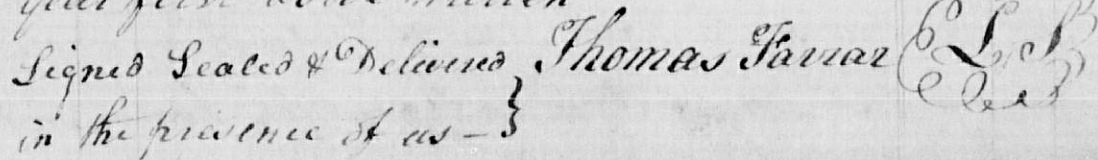 year first above written
Signed Sealed & Delivered } Thomas Farrar L. S.
in the presence of us — }